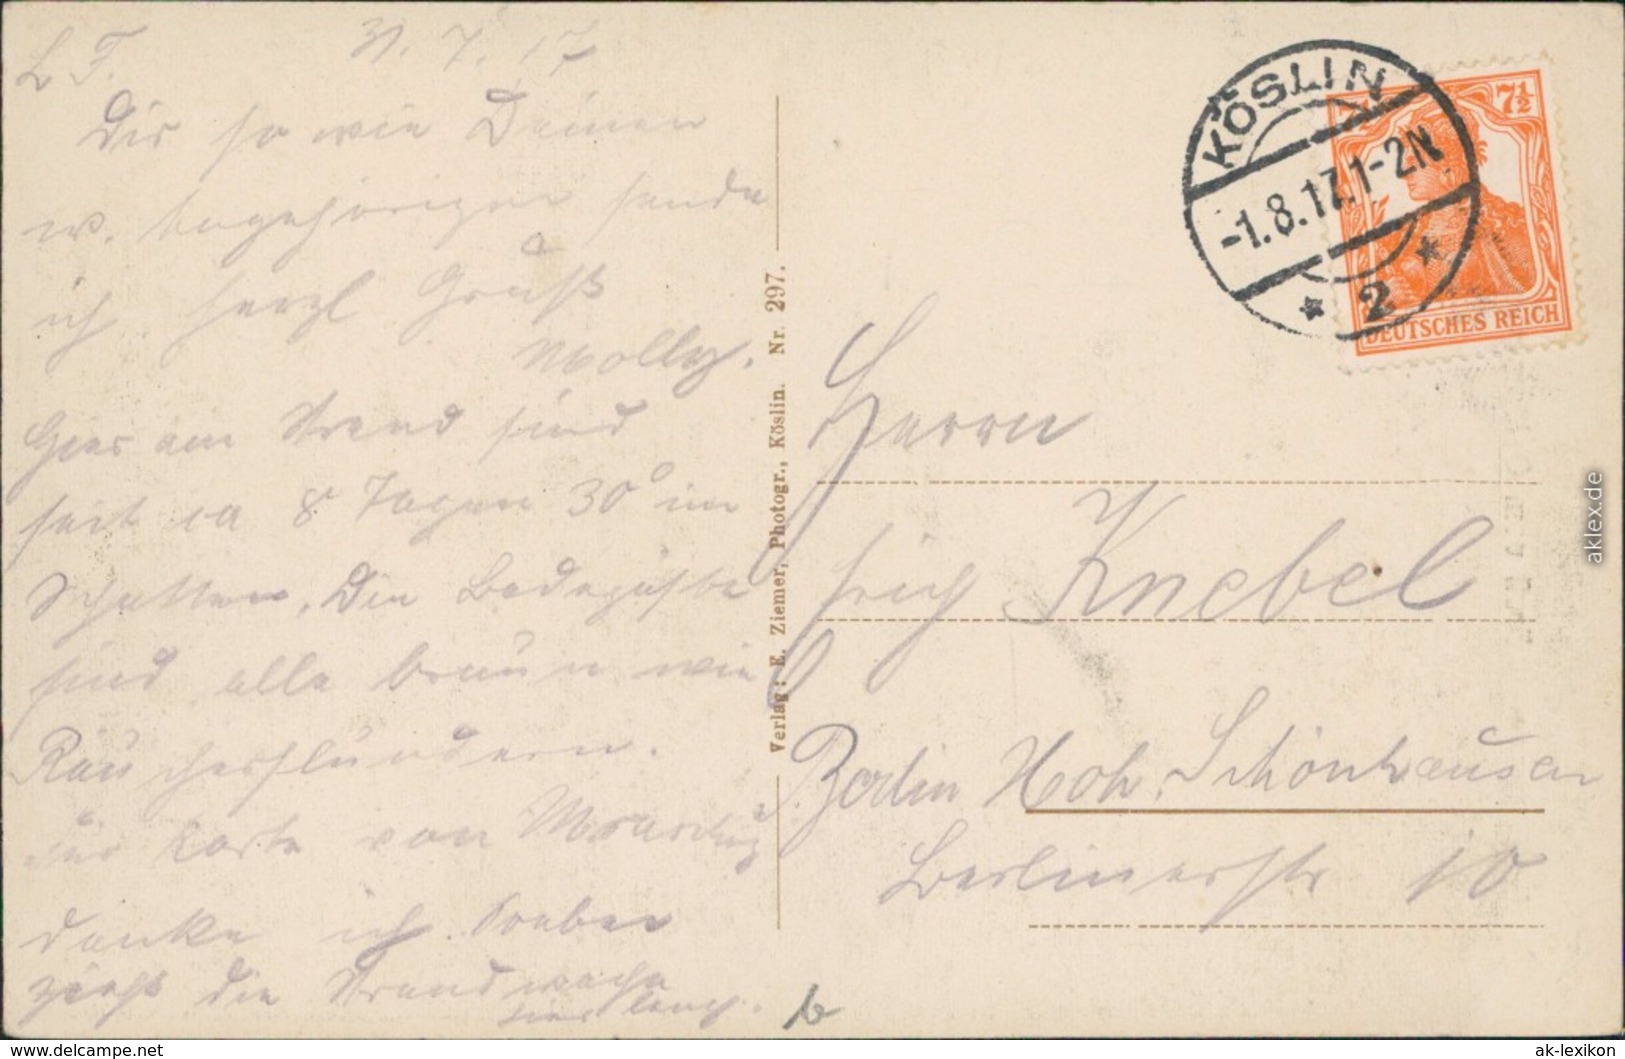 L. F. 31. 7. 17
Dir so wie Deinen
w. Angehörigen sende
ich herzl Gruß
Molly.
Hier am Strand sind
seit ca 8 Tagen 30° im
Schatten. Die Badegäste
sind alle braun wie
Räucherflundern.
Für Karte von
danke ich. Soeben
zieht die Strandwache
hier lang.
Verlag: E. Ziemer, Photogr., Köslin. Nr. 297.
KÖSLIN
-1.8.17.1-2N
* 2 *
7½
DEUTSCHES REICH
Herrn
Erich Knebel
Berlin Hoh. Schönhausen
Berlinerstr 10
b
aklex.de
www.delcampe.net
ak-lexikon